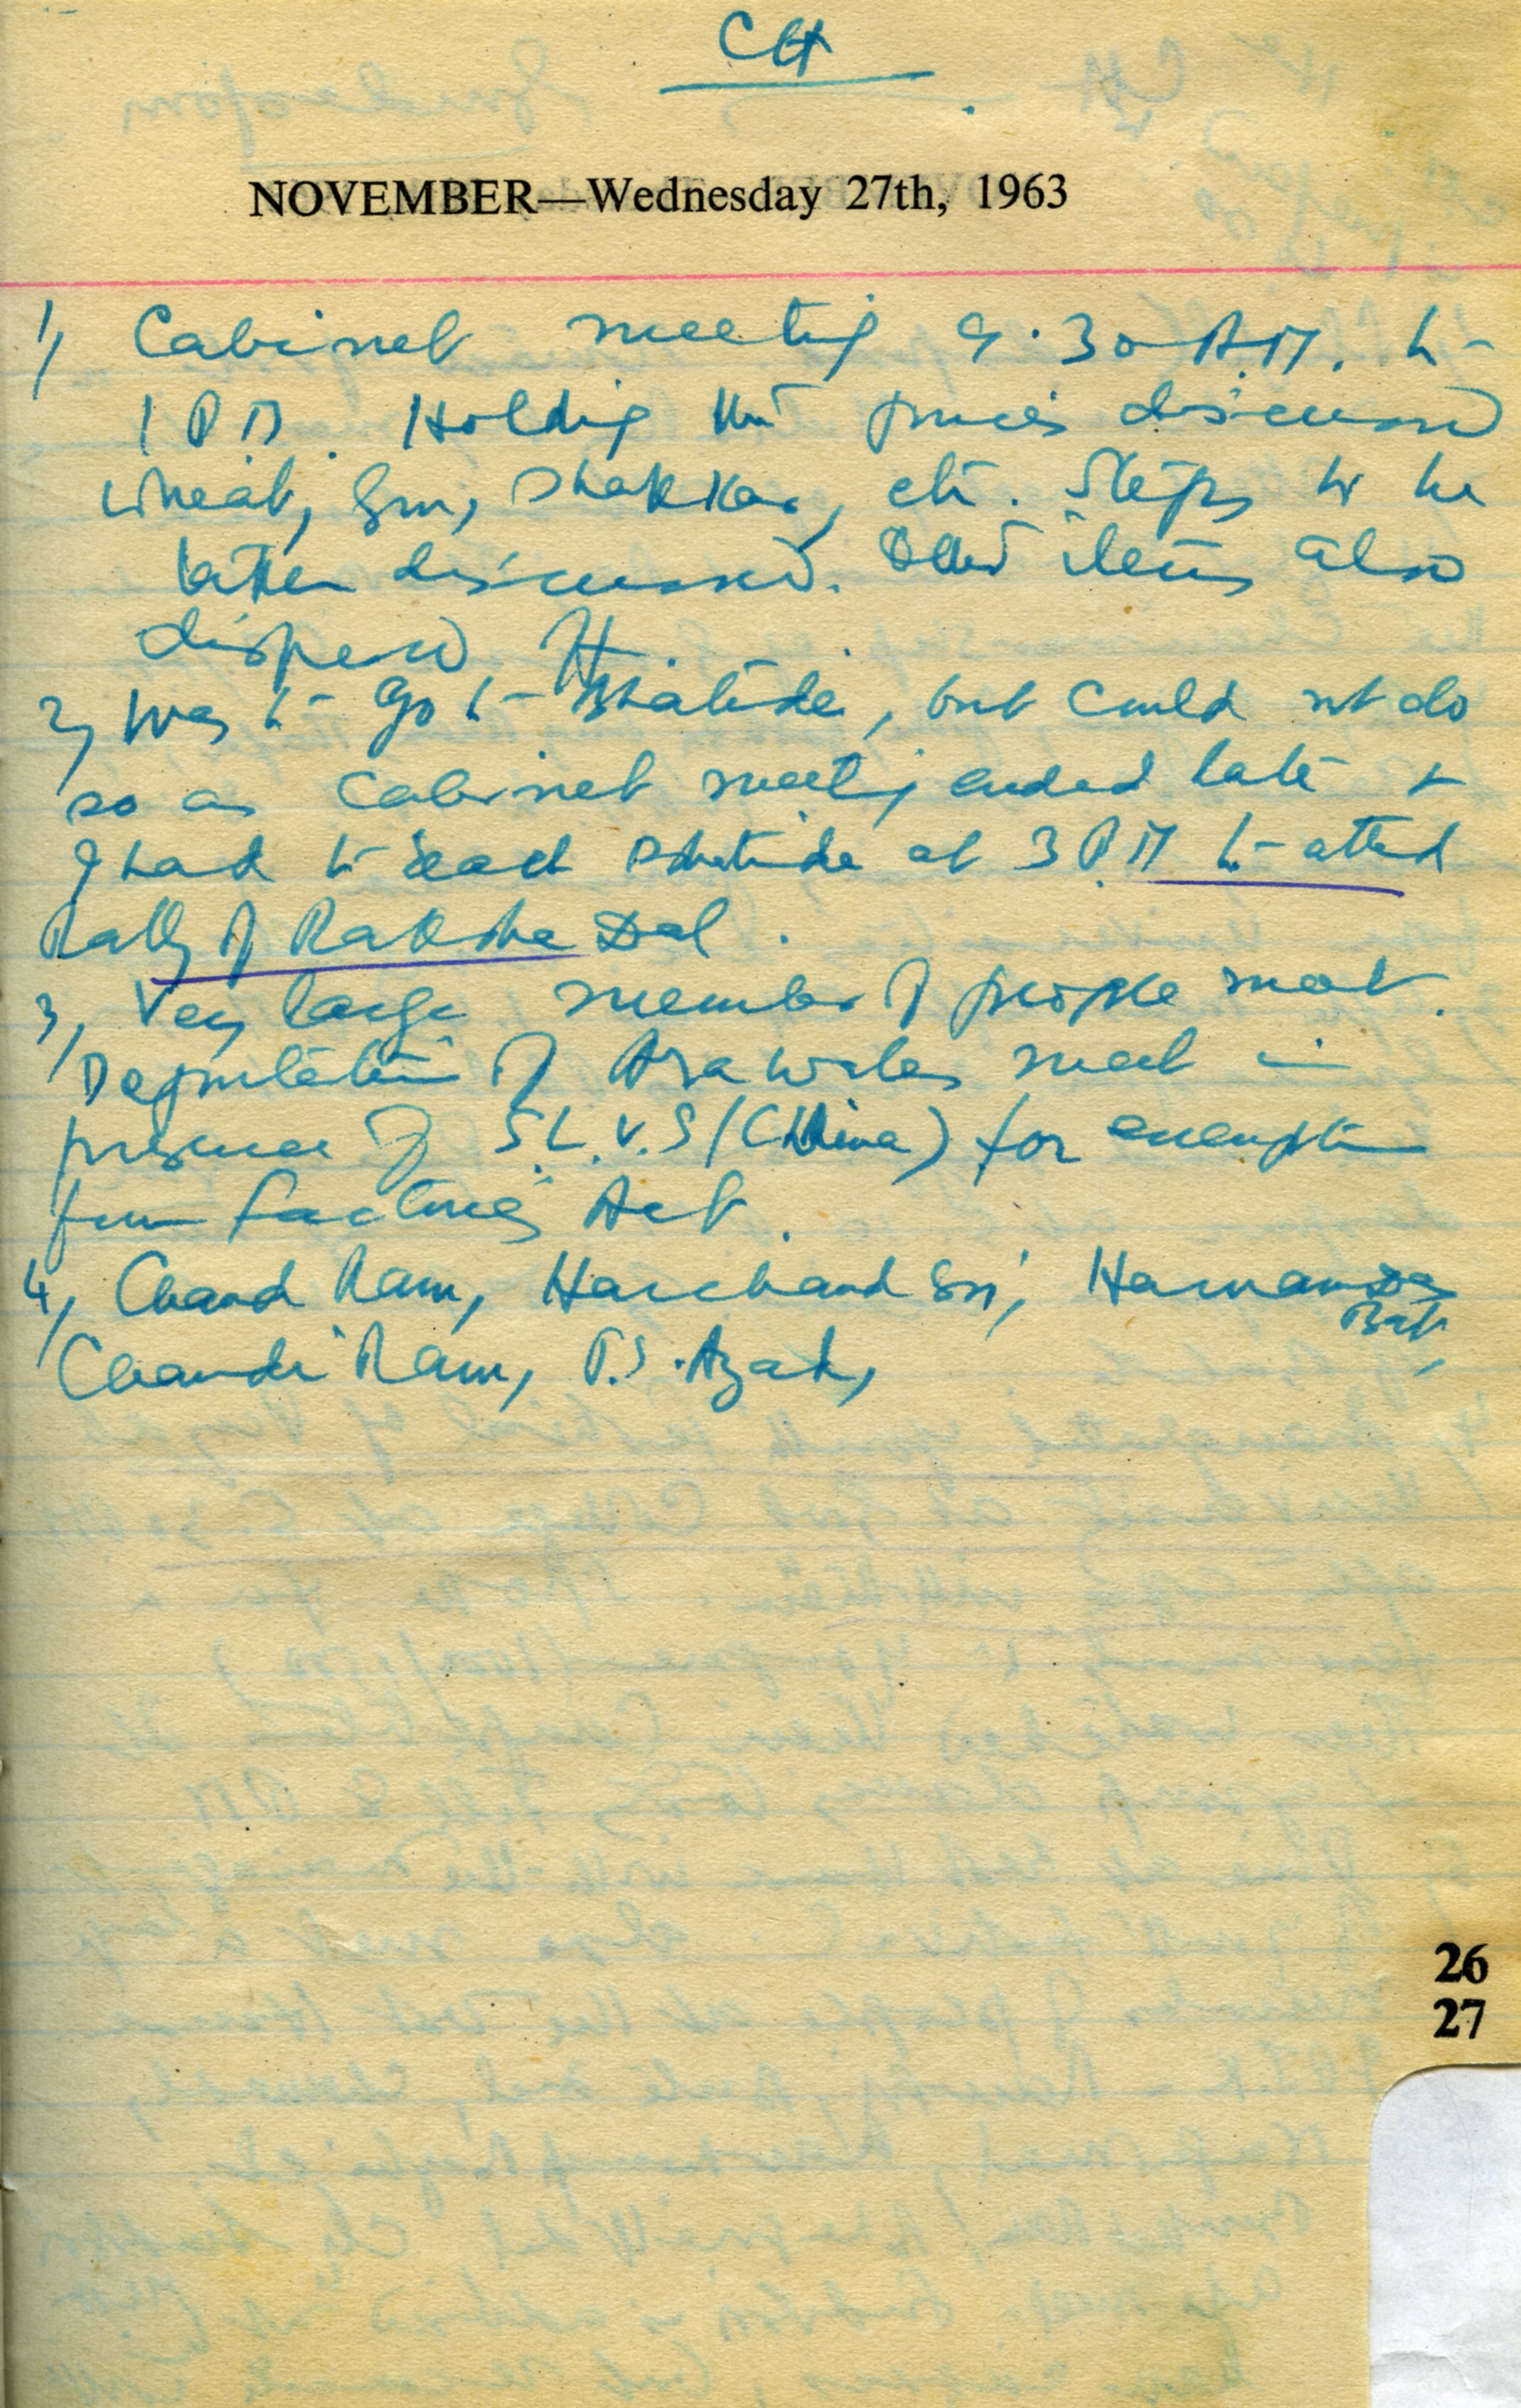 CH
NOVEMBER—Wednesday 27th, 1963
1, Cabinet meeting 9.30 A.M. to
1 P.M. Holding the prices discussed
wheat, Gur, Shakkar, etc. Steps to be
taken discussed. Other items also
disposed of.
2, Was to go to Bhatinda, but could not do
so as Cabinet meeting ended late &
I had to reach Bhatinda at 3 P.M to attend
Rally of Raksha Dal.
3, Very large number of people met.
Deputation of Ara walas met in
presence of S.L.V.S (China) for exemption
from Factories Act.
4, Chand Ram, Harchand Sn, Harnam
Chandi Ram, P.S. Azad,
26
27